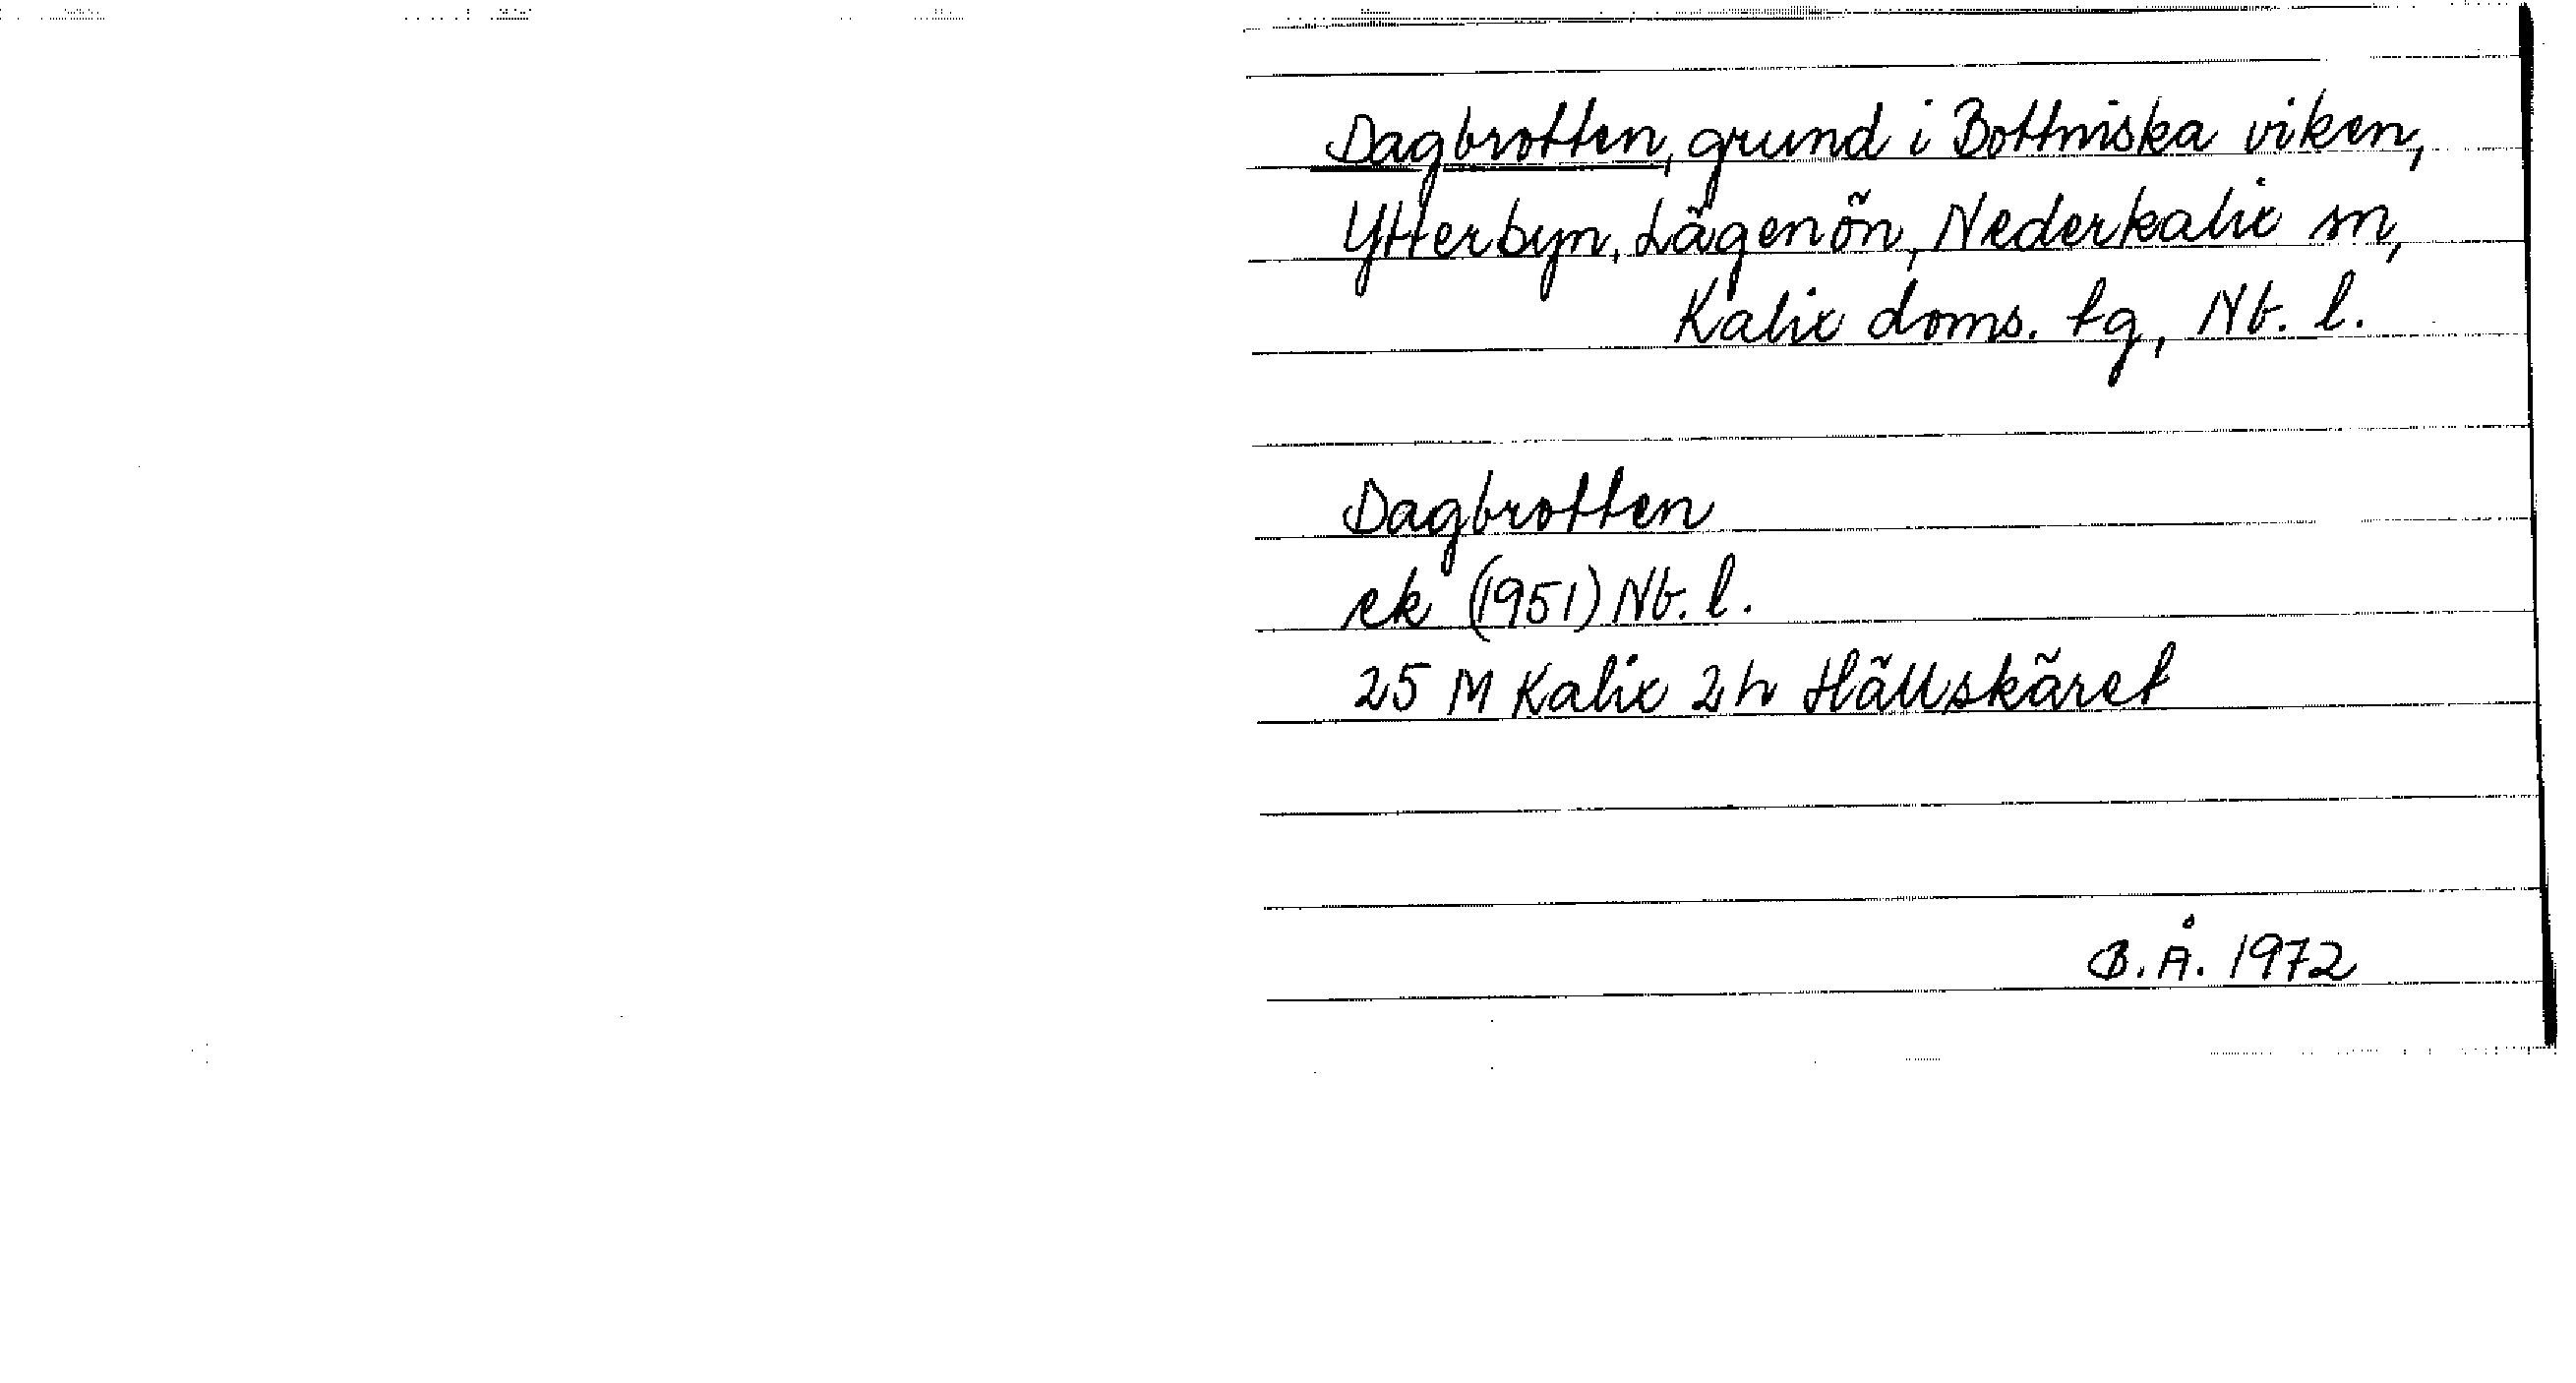 Dagbrotten, grund i Bottniska viken,
Ytterbyn, Lägenön, Nederkalix sn,
Kalix doms. tg, Nb. l.
Dagbrotten
ek (1951) Nb. l.
25 M Kalix 2 h Hällskäret
B.Å. 1972